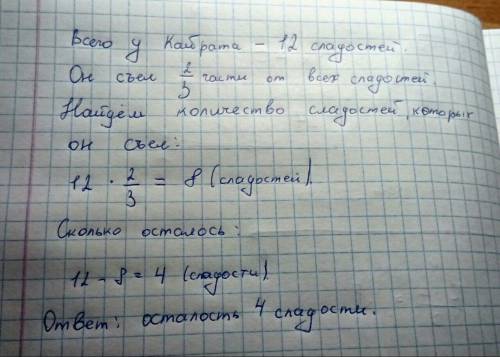 Всего у Кайрата - 12 сладостей.
Он съел 2/3 части от всех сладостей.
Найдём количество сладостей, которых
он съел:
12 · 2/3 = 8 (сладостей).
Сколько осталось:
12 - 8 = 4 (сладости).
Ответ: осталость 4 сладости.